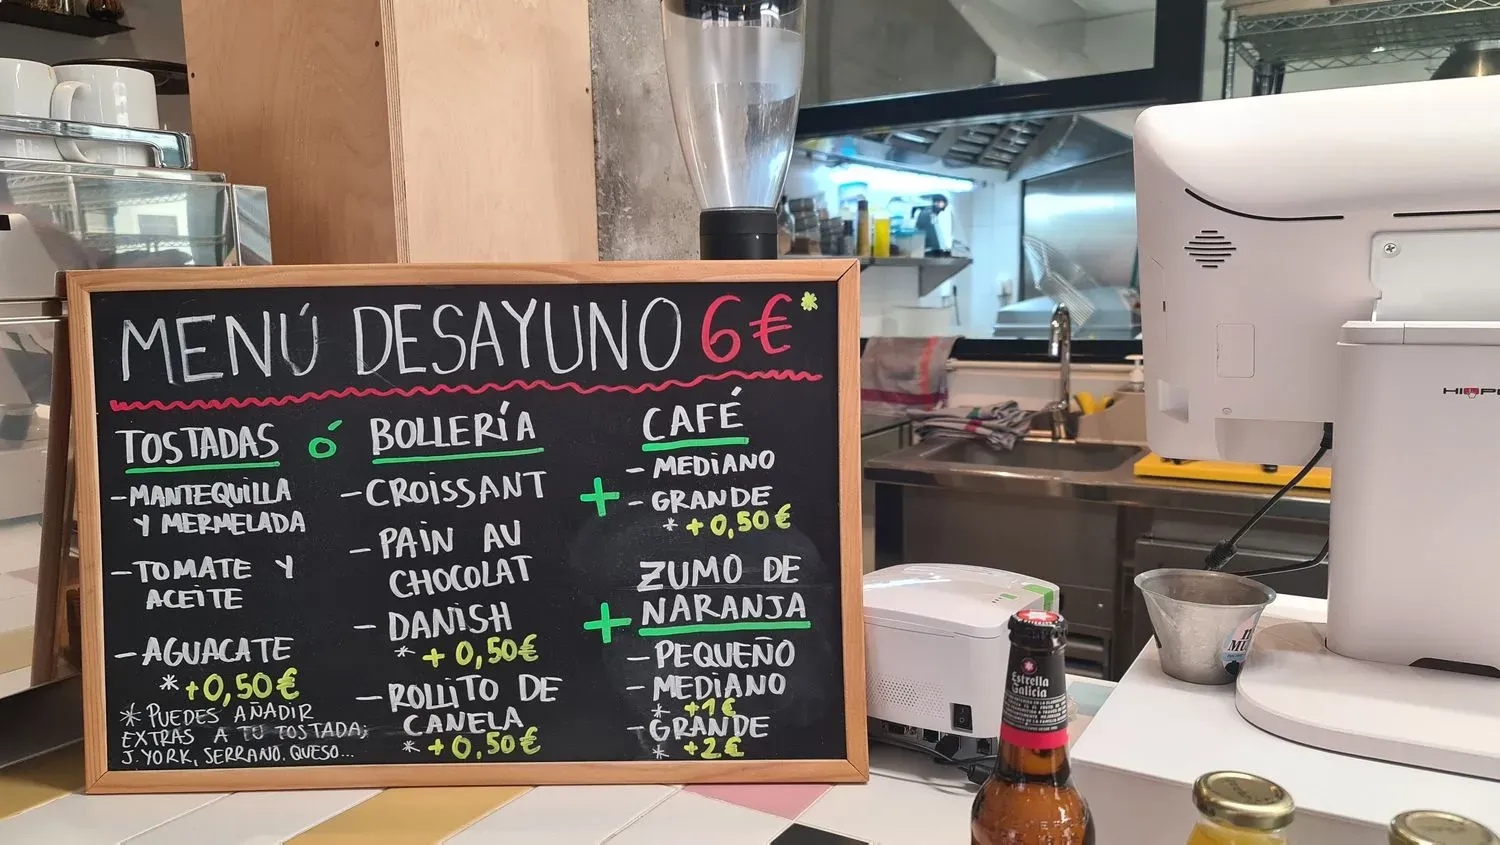 MENÚ DESAYUNO 6€*
TOSTADAS
- MANTEQUILLA
Y MERMELADA
- TOMATE Y
ACEITE
- AGUACATE
* +0,50€
* PUEDES AÑADIR
EXTRAS A TU TOSTADA;
J. YORK, SERRANO, QUESO...
Ó
BOLLERÍA
- CROISSANT
- PAIN AU
CHOCOLAT
- DANISH
* +0,50€
- ROLLITO DE
CANELA
* +0,50€
+
CAFÉ
- MEDIANO
- GRANDE
* +0,50€
+
ZUMO DE
NARANJA
- PEQUEÑO
- MEDIANO
* +1€
- GRANDE
* +2€
Estrella
Galicia